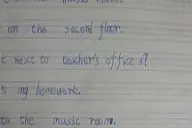 the music room.
on the second floor.
next to teacher's office?
my homework.
to the music room.